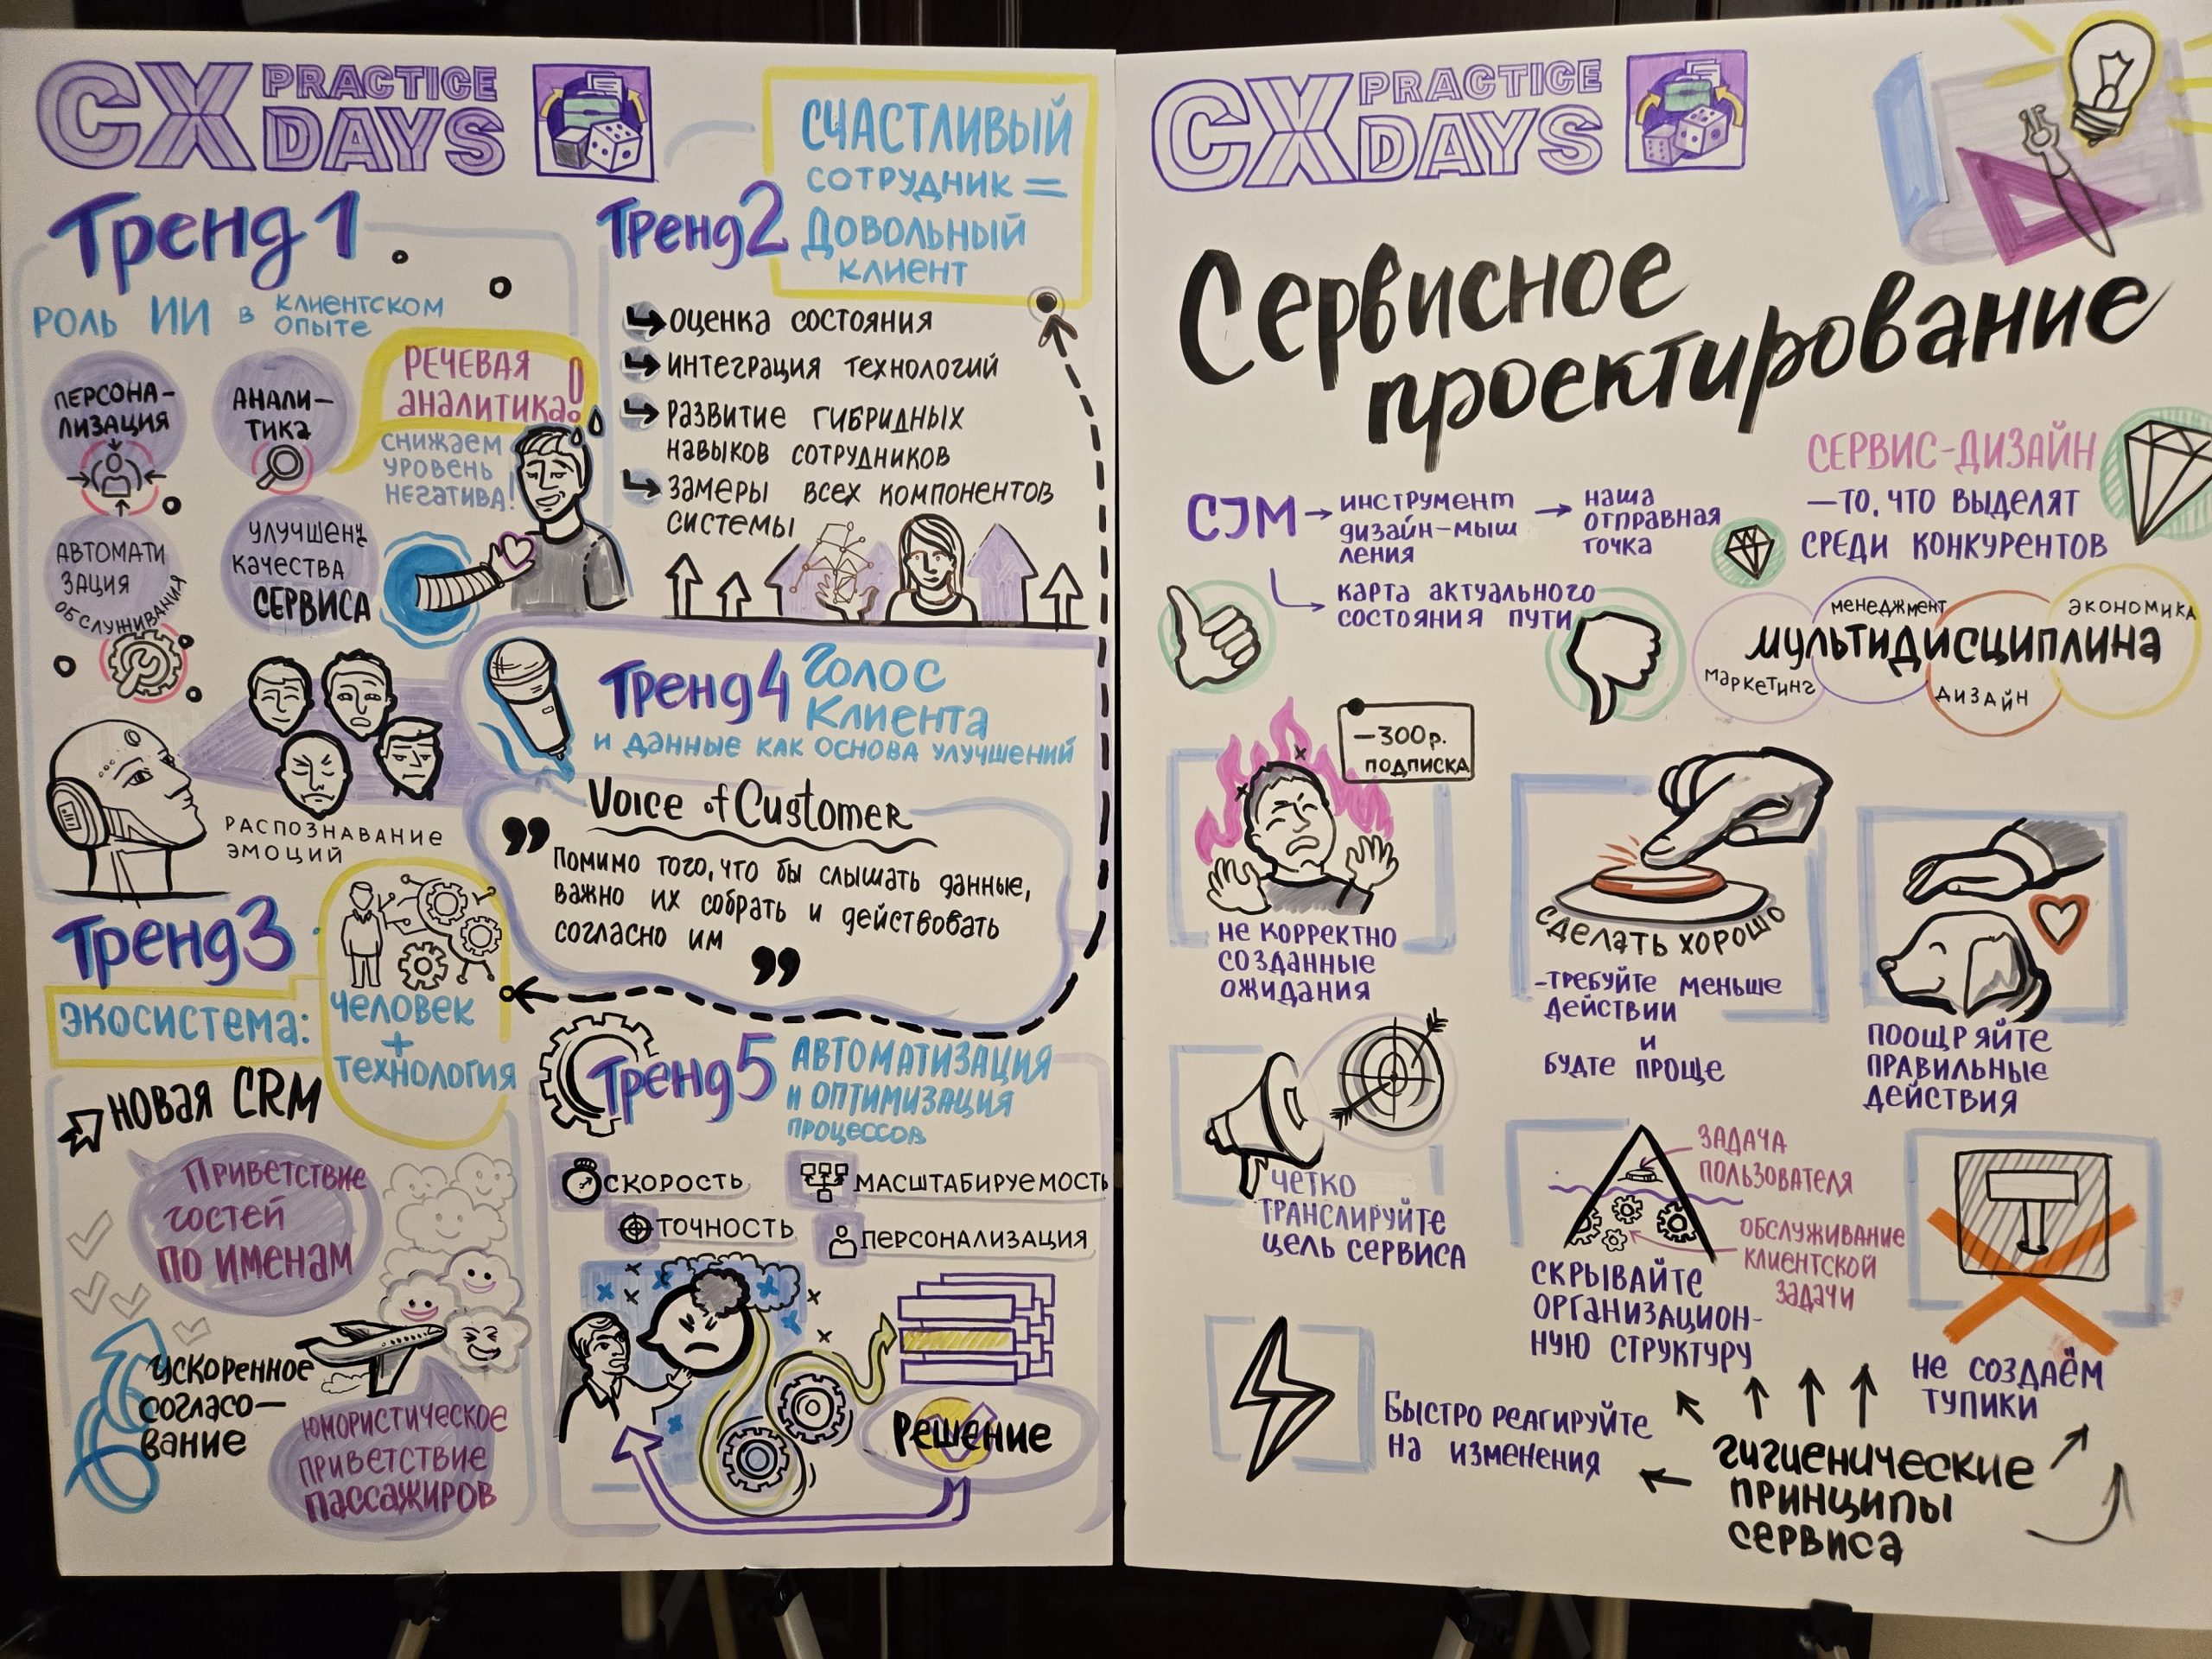 CX PRACTICE
DAYS
Тренд 1
РОЛЬ ИИ В КЛИЕНТСКОМ
ОПЫТЕ
ПЕРСОНА-
ЛИЗАЦИЯ
АНАЛИ-
ТИКА
РЕЧЕВАЯ
АНАЛИТИКА!
СНИЖАЕМ
УРОВЕНЬ
НЕГАТИВА!
АВТОМАТИ
ЗАЦИЯ
ОБСЛУЖИВАНИЯ
КАЧЕСТВА
СЕРВИСА
РАСПОЗНАВАНИЕ
ЭМОЦИЙ
Тренд 2
СЧАСТЛИВЫЙ
СОТРУДНИК =
ДОВОЛЬНЫЙ
КЛИЕНТ
ОЦЕНКА СОСТОЯНИЯ
ИНТЕГРАЦИЯ ТЕХНОЛОГИЙ
РАЗВИТИЕ ГИБРИДНЫХ
НАВЫКОВ СОТРУДНИКОВ
ЗАМЕРЫ ВСЕХ КОМПОНЕНТОВ
СИСТЕМЫ
Тренд 3
ЭКОСИСТЕМА:
ЧЕЛОВЕК
+
ТЕХНОЛОГИЯ
НОВАЯ CRM
ПРИВЕТСТВИЕ
ГОСТЕЙ
ПО ИМЕНАМ
УСКОРЕННОЕ
СОГЛАСО-
ВАНИЕ
ЮМОРИСТИЧЕСКОЕ
ПРИВЕТСТВИЕ
ПАССАЖИРОВ
Тренд 4
ГОЛОС
КЛИЕНТА
И ДАННЫЕ КАК ОСНОВА УЛУЧШЕНИЙ
Voice of Customer
„ ПОМИМО ТОГО, ЧТО БЫ СЛЫШАТЬ ДАННЫЕ,
ВАЖНО ИХ СОБРАТЬ И ДЕЙСТВОВАТЬ
СОГЛАСНО ИМ „
Тренд 5
АВТОМАТИЗАЦИЯ
И ОПТИМИЗАЦИЯ
ПРОЦЕССОВ
СКОРОСТЬ
МАСШТАБИРУЕМОСТЬ
ТОЧНОСТЬ
ПЕРСОНАЛИЗАЦИЯ
РЕШЕНИЕ
CX PRACTICE
DAYS
Сервисное
проектирование
СЕРВИС-ДИЗАЙН
—ТО, ЧТО ВЫДЕЛЯТ
СРЕДИ КОНКУРЕНТОВ
CJM → ИНСТРУМЕНТ
ДИЗАЙН-МЫШ
ЛЕНИЯ
→ НАША
ОТПРАВНАЯ
ТОЧКА
КАРТА АКТУАЛЬНОГО
СОСТОЯНИЯ ПУТИ
МЕНЕДЖМЕНТ
ЭКОНОМИКА
МУЛЬТИДИСЦИПЛИНА
МАРКЕТИНГ
ДИЗАЙН
—300р.
ПОДПИСКА
НЕ КОРРЕКТНО
СОЗДАННЫЕ
ОЖИДАНИЯ
СДЕЛАТЬ ХОРОШО
-ТРЕБУЙТЕ МЕНЬШЕ
ДЕЙСТВИИ
И
БУДТЕ ПРОЩЕ
ПООЩРЯЙТЕ
ПРАВИЛЬНЫЕ
ДЕЙСТВИЯ
ЧЕТКО
ТРАНСЛИРУЙТЕ
ЦЕЛЬ СЕРВИСА
ЗАДАЧА
ПОЛЬЗОВАТЕЛЯ
ОБСЛУЖИВАНИЕ
КЛИЕНТСКОЙ
ЗАДАЧИ
СКРЫВАЙТЕ
ОРГАНИЗАЦИОН-
НУЮ СТРУКТУРУ
НЕ СОЗДАЁМ
ТУПИКИ
БЫСТРО РЕАГИРУЙТЕ
НА ИЗМЕНЕНИЯ
ГИГИЕНИЧЕСКИЕ
ПРИНЦИПЫ
СЕРВИСА